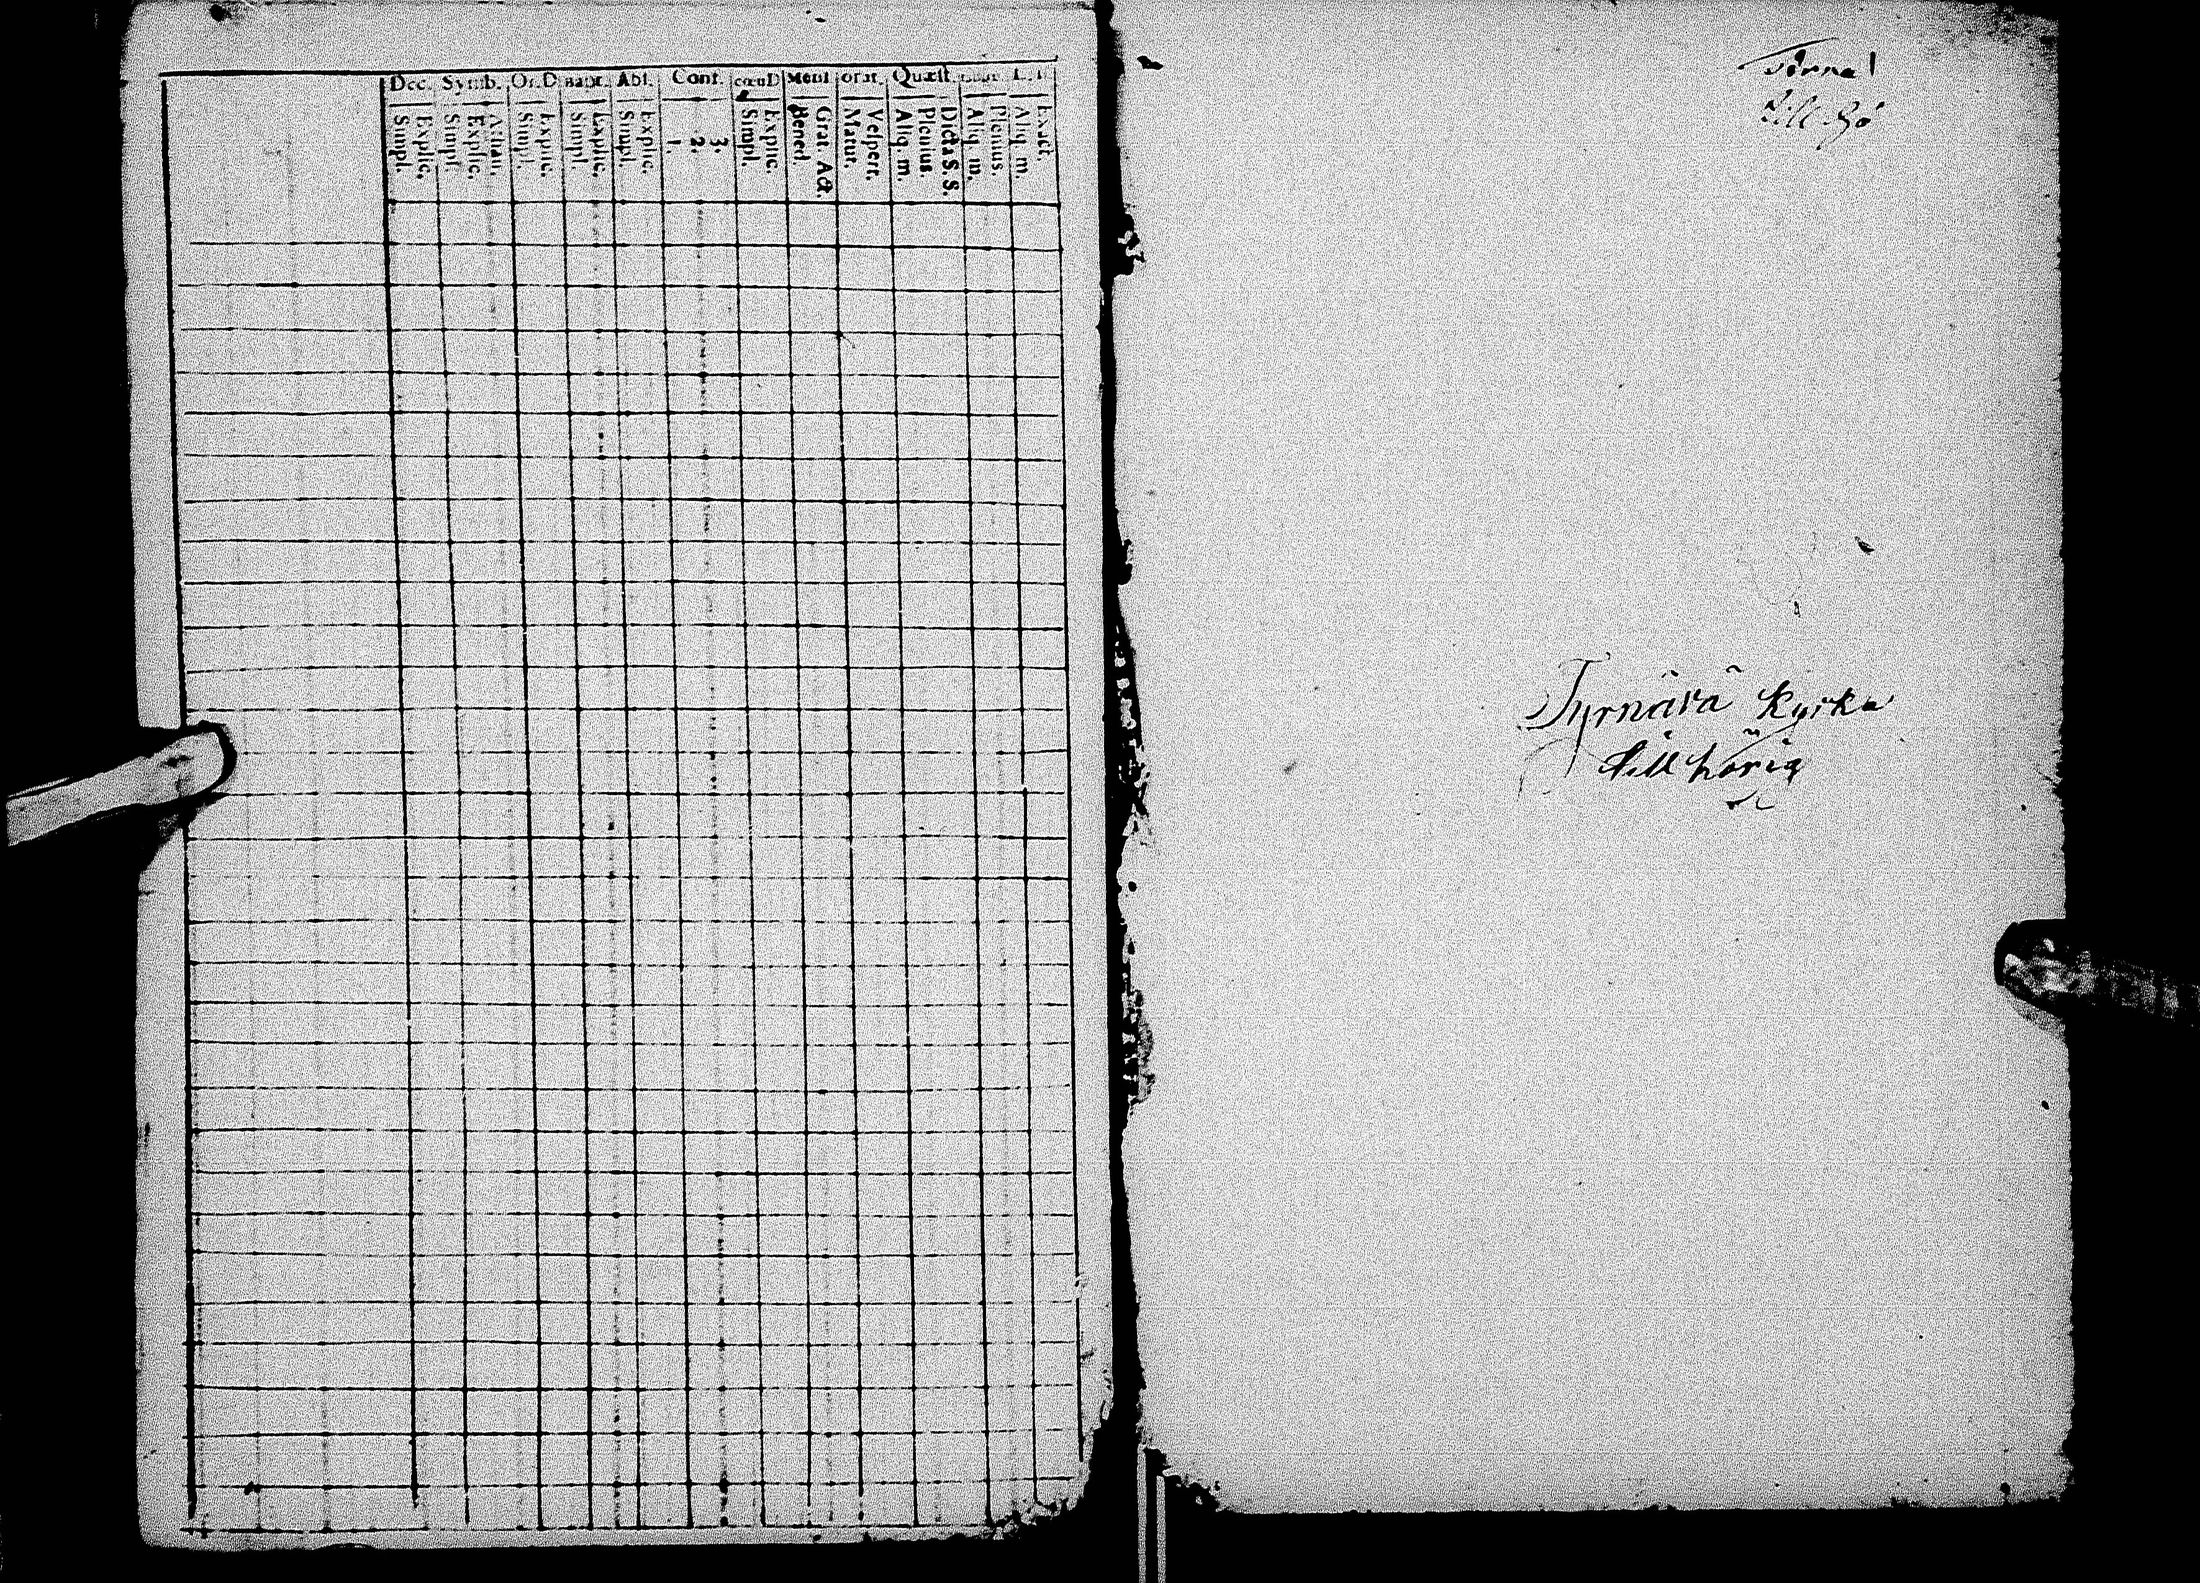 Dec. Symb. Or.D Bapt. Abs. Conf. CœnD Mens. orat. Quæst.
Simpl. Explic. Simpl. Explic. Athan. Simpl. Explic. Simpl. Explic. Simpl. Explic. 1. 2. 3. Simpl. Explic. Bened. Grat. Act. Matut. Vespert. Aliq. m. Plenius. Dicta S. S. Aliq. m. Plenius. Aliq. m. Exact.
Tyrnävä Kyrka
till hörig